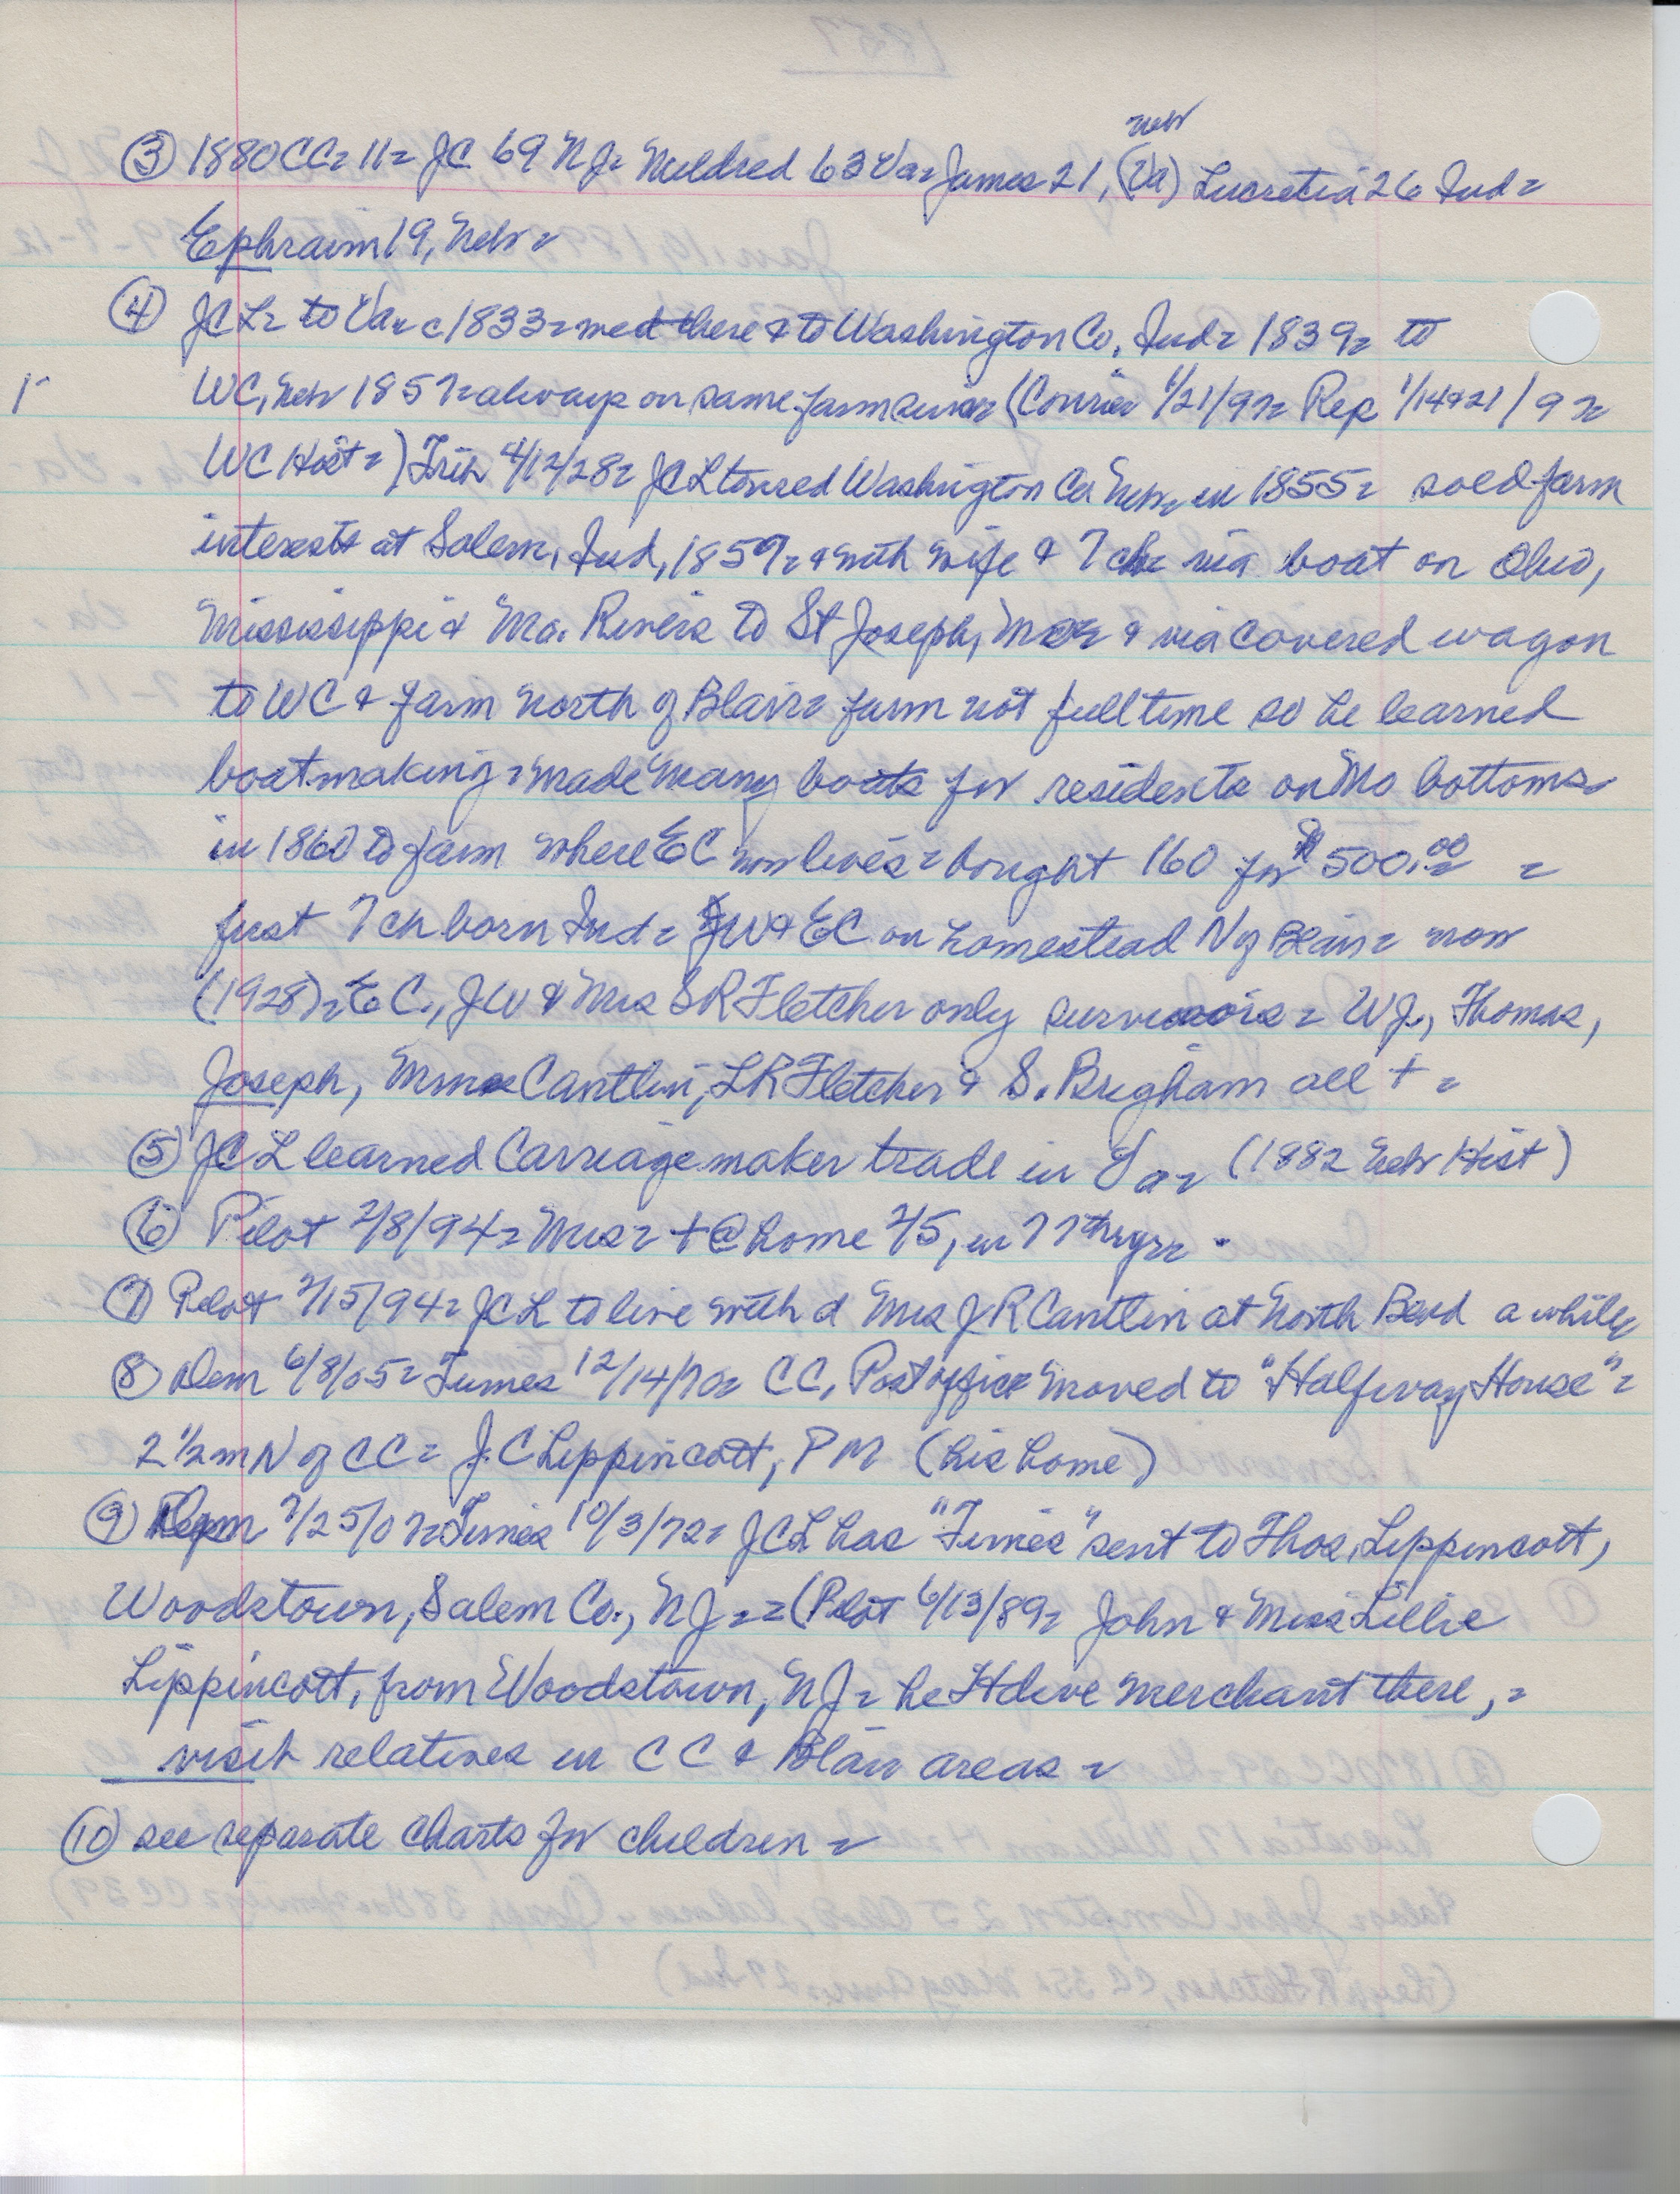 Nebr
③ 1880 CC= 11= JC 69 NJ= Mildred 63 Va= James 21, (Va) Lucretia 26 Ind=
Ephraim 19, Nebr=
④ JCL= to Va= c1833= med there & to Washington Co, Ind= 1839= to
WC, Nebr 1857= always on same farm since (Courier 1/21/97= Rep 1/14&21/97=
WC Hist=) Trib 4/12/28= JCL toured Washington Co Nebr in 1855= sold farm
interests at Salem, Ind, 1857= & with wife & 7 ch= via boat on Ohio,
Mississippi & Mo. Rivers to St Joseph, Mo= & via covered wagon
to WC & farm north of Blair= farm not full time so he learned
boatmaking= made many boats for residents on Mo bottoms
in 1860 to farm where EC now lives= bought 160 for $500.00 =
first 7 ch born Ind= JW & EC on homestead N of Blair= now
(1928)= EC., JW & Mrs SR Fletcher only survivors= WJ., Thomas,
Joseph, Mmes Cantlin, LR Fletcher & S. Brigham all +=
⑤ JCL learned Carriage maker trade in Va= (1882 Nebr Hist)
⑥ Pilot 2/8/94= Mrs= + @ home 2/5, in 77th yr=
⑦ Pilot 2/15/94= JCL to live with d Mrs JR Cantlin at North Bend a while
⑧ Dem 6/8/05= Times 12/14/70= CC, Post office moved to "Halfway House"=
2 1/2 m N of CC= J.C Lippincott, PM (his home)
⑨ Dem 7/25/07= Times 10/3/72= JCL has "Times" sent to Thos. Lippincott,
Woodstown, Salem Co., NJ== (Pilot 6/13/89= John & Miss Lillie
Lippincott, from Woodstown, NJ= he Hdwe merchant there,=
visit relatives in CC & Blair areas=
⑩ see separate charts for children=